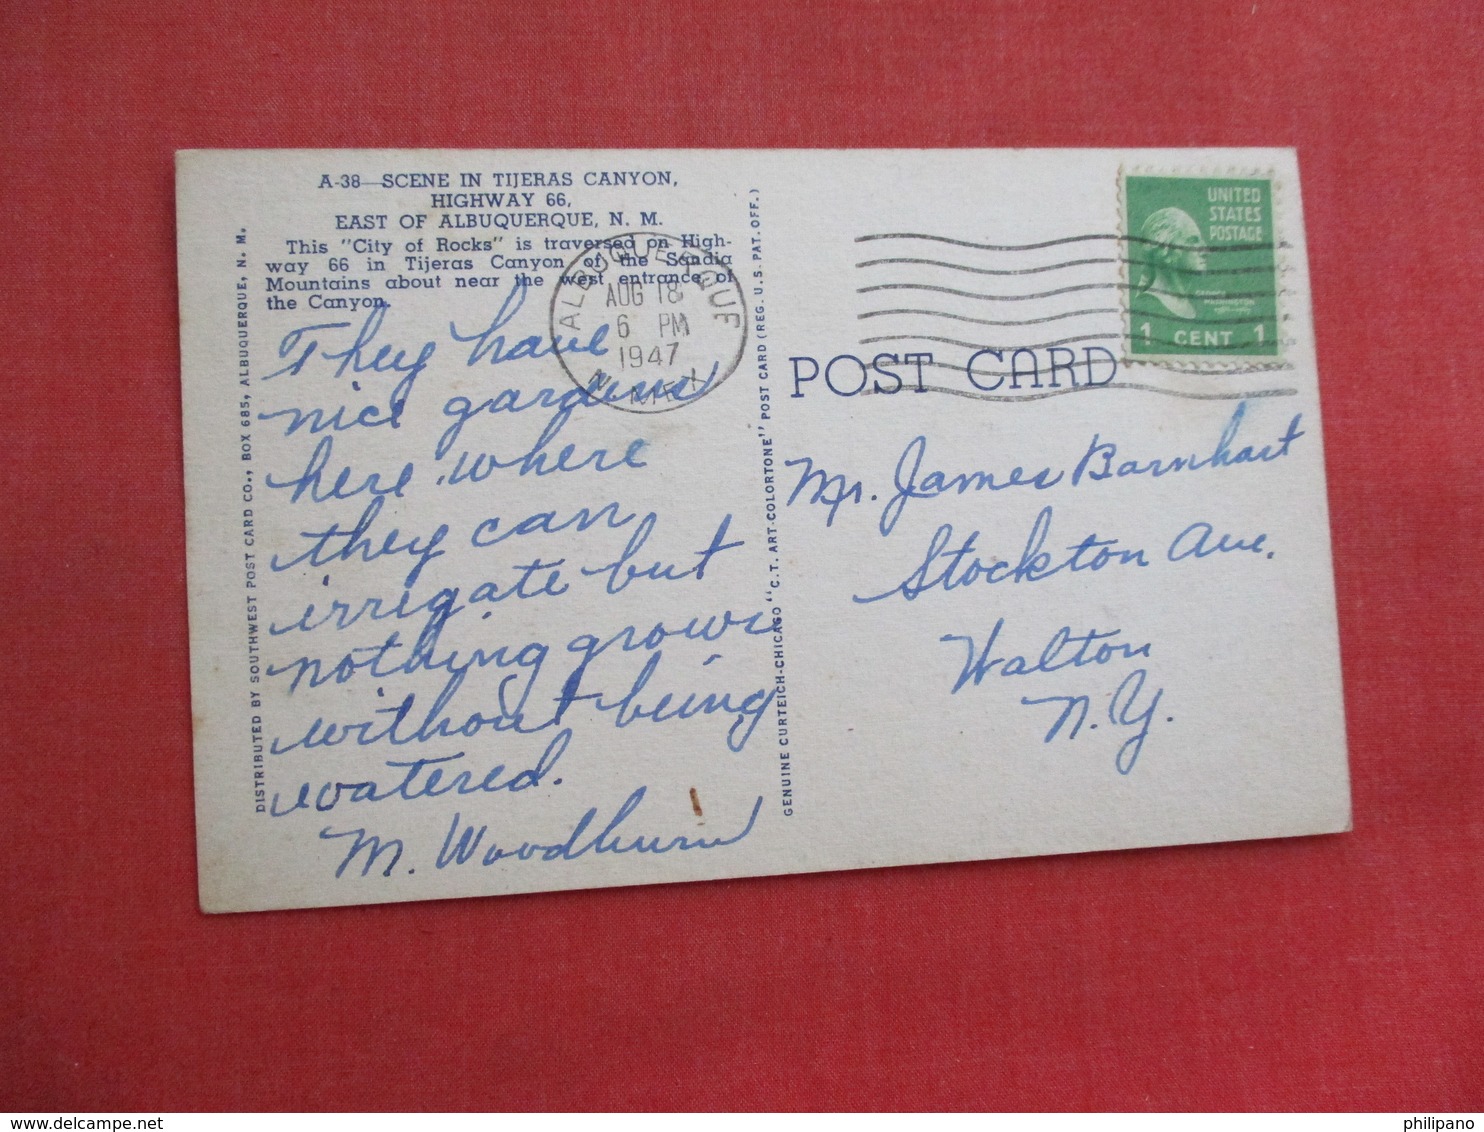 A-38—SCENE IN TIJERAS CANYON,
HIGHWAY 66,
EAST OF ALBUQUERQUE, N. M.
This "City of Rocks" is traversed on High-
way 66 in Tijeras Canyon of the Sandia
Mountains about near the west entrance of
the Canyon.
They have
nice gardens
here where
they can
irrigate but
nothing grows
without being
watered.
M. Woodburn
DISTRIBUTED BY SOUTHWEST POST CARD CO., BOX 685, ALBUQUERQUE, N. M.
GENUINE CURTEICH-CHICAGO "C. T. ART-COLORTONE" POST CARD (REG. U. S. PAT. OFF.)
ALBUQUERQUE
AUG 18
6 PM
1947
N. MEX.
UNITED
STATES
POSTAGE
GEORGE
WASHINGTON
1 CENT 1
POST CARD
Mr. James Barnhart
Stockton Ave.
Walton
N.Y.
delcampe.net
philipano